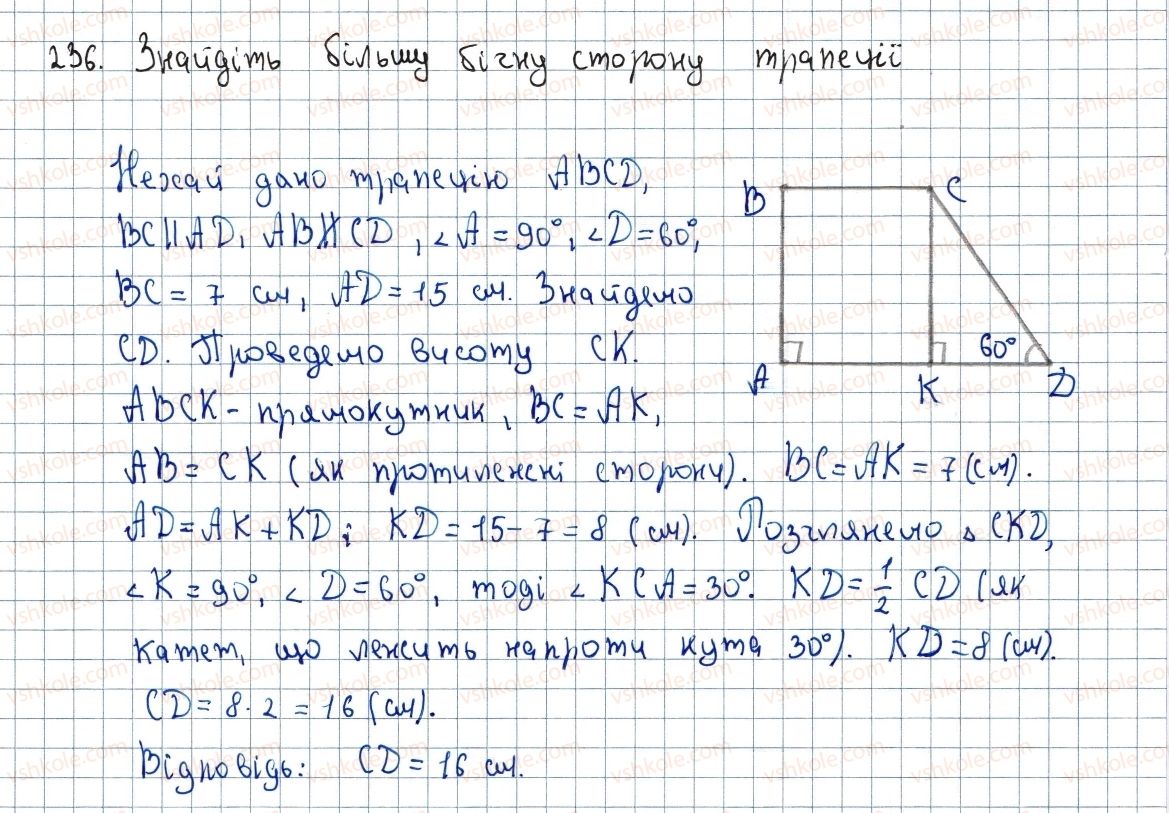 236. Знайдіть більшу бічну сторону трапеції
Нехай дано трапецію ABCD,
BC||AD, AB∦CD, ∠A = 90°, ∠D = 60°,
BC = 7 см, AD = 15 см. Знайдемо
CD. Проведемо висоту CK.
ABCK - прямокутник, BC = AK,
AB = CK (як протилежні сторони). BC = AK = 7 (см).
AD = AK + KD; KD = 15 - 7 = 8 (см). Розглянемо ▵ CKD,
∠K = 90°, ∠D = 60°, тоді ∠KCA = 30°. KD = 1/2 CD (як
катет, що лежить напроти кута 30°). KD = 8 (см).
CD = 8 · 2 = 16 (см).
Відповідь: CD = 16 см.
B C
60°
A K D
vshkole.com